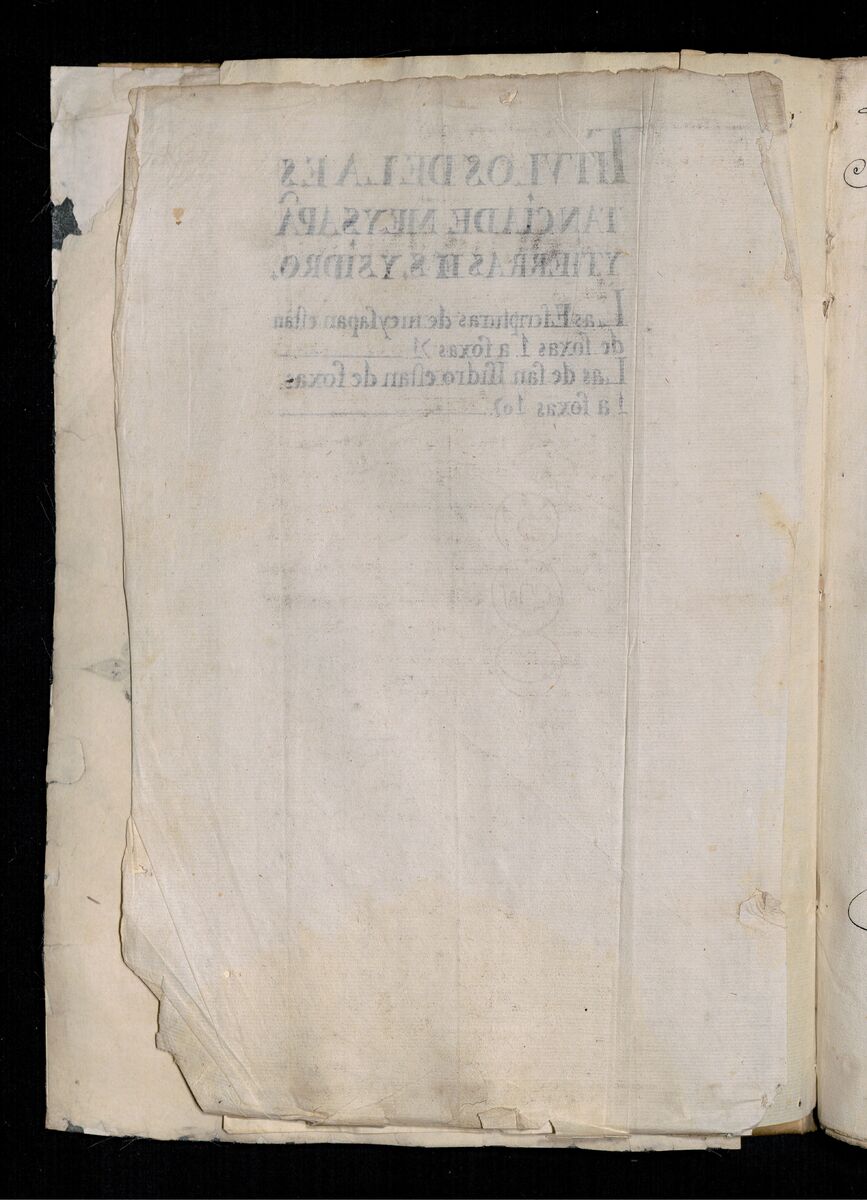 TITVLOS DE LA ES
TANCIA DE MEYSAPA
Y TIERRAS D S. YSIDRO.
Las Escripturas de meysapan estan
de foxas 1 a foxas
Las de san Issidro estan de foxas
1 a foxas